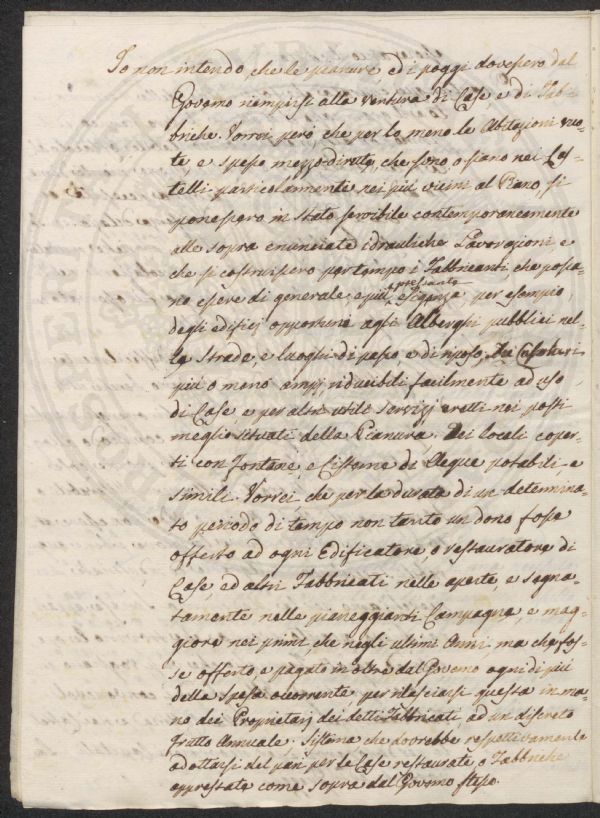 Io non intendo, che le pianure ed i poggi dovessero dal
Governo riempirsi alla ventura di Case e di Fab-
briche. Vorrei però, che per lo meno le Abitazioni vuo-
te, e spesso mezzo dirute, che sono o siano nei Cas-
telli particolarmente nei più vicini al Piano, si
ponessero in stato servibile contemporaneamente
alle sopra enunciate idrauliche Lavorazioni, e
che si costruissero per tempo i Fabbricanti, che possa-
no essere di generale, e più pressante esigenza, per esempio,
degli edifizj opportuni agli Alberghi pubblici nel-
le Strade, e luoghi di passo e di riposo,
più o meno ampj riducibili facilmente ad uso
di Case, e per altri utili servizj eretti nei posti
meglio situati della Pianura, Dei locali coper-
ti con Fontane, e Cisterne di Acque potabili e
simili. Vorrei che per la durata di un determina-
to periodo di tempo non tanto un dono fosse
offerto ad ogni Edificatore, o restauratore di
Case ed altri Fabbricati nelle aperte, e segna-
tamente nelle pianeggianti Campagne, e mag-
giore nei primi che negli ultimi Anni, ma che fos-
se offerto, e pagato in oltre dal Governo ogni di più
della spesa occorrente per rilasciarsi questa in ma-
no dei Proprietarj dei detti Fabbricati, ad un discreto
frutto Annuale; Sistema che dovrebbe respettivamente
adottarsi del pari per le Case restaurate, o Fabbriche
apprestate come sopra dal Governo stesso.